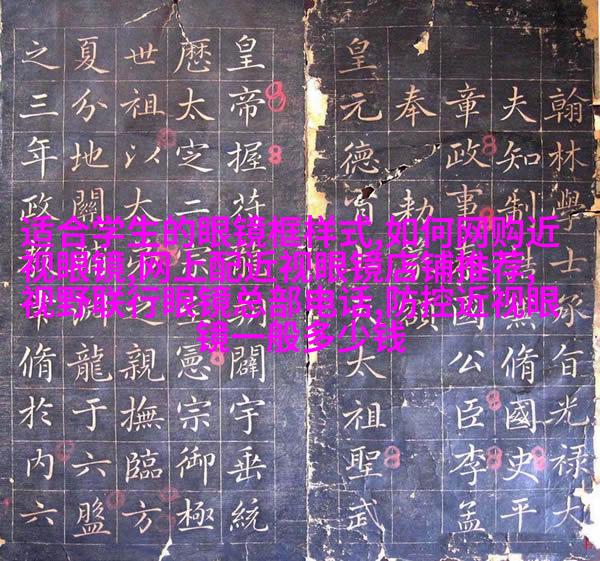 适合学生的眼镜框样式,如何网购近
视眼镜,网上配近视眼镜店铺推荐,
视野联行眼镜总部电话,防控近视眼
镜一般多少钱
翰林學士承旨光祿大
夫知制兼脩國史平
章政事國公臣李孟
奉勅
皇元德太祖聖武
皇帝握符闢宇垂統
歷太定二憲宗御極
世祖以大親撫臨方
夏分地關龍于六盤
之三年政脩於內六